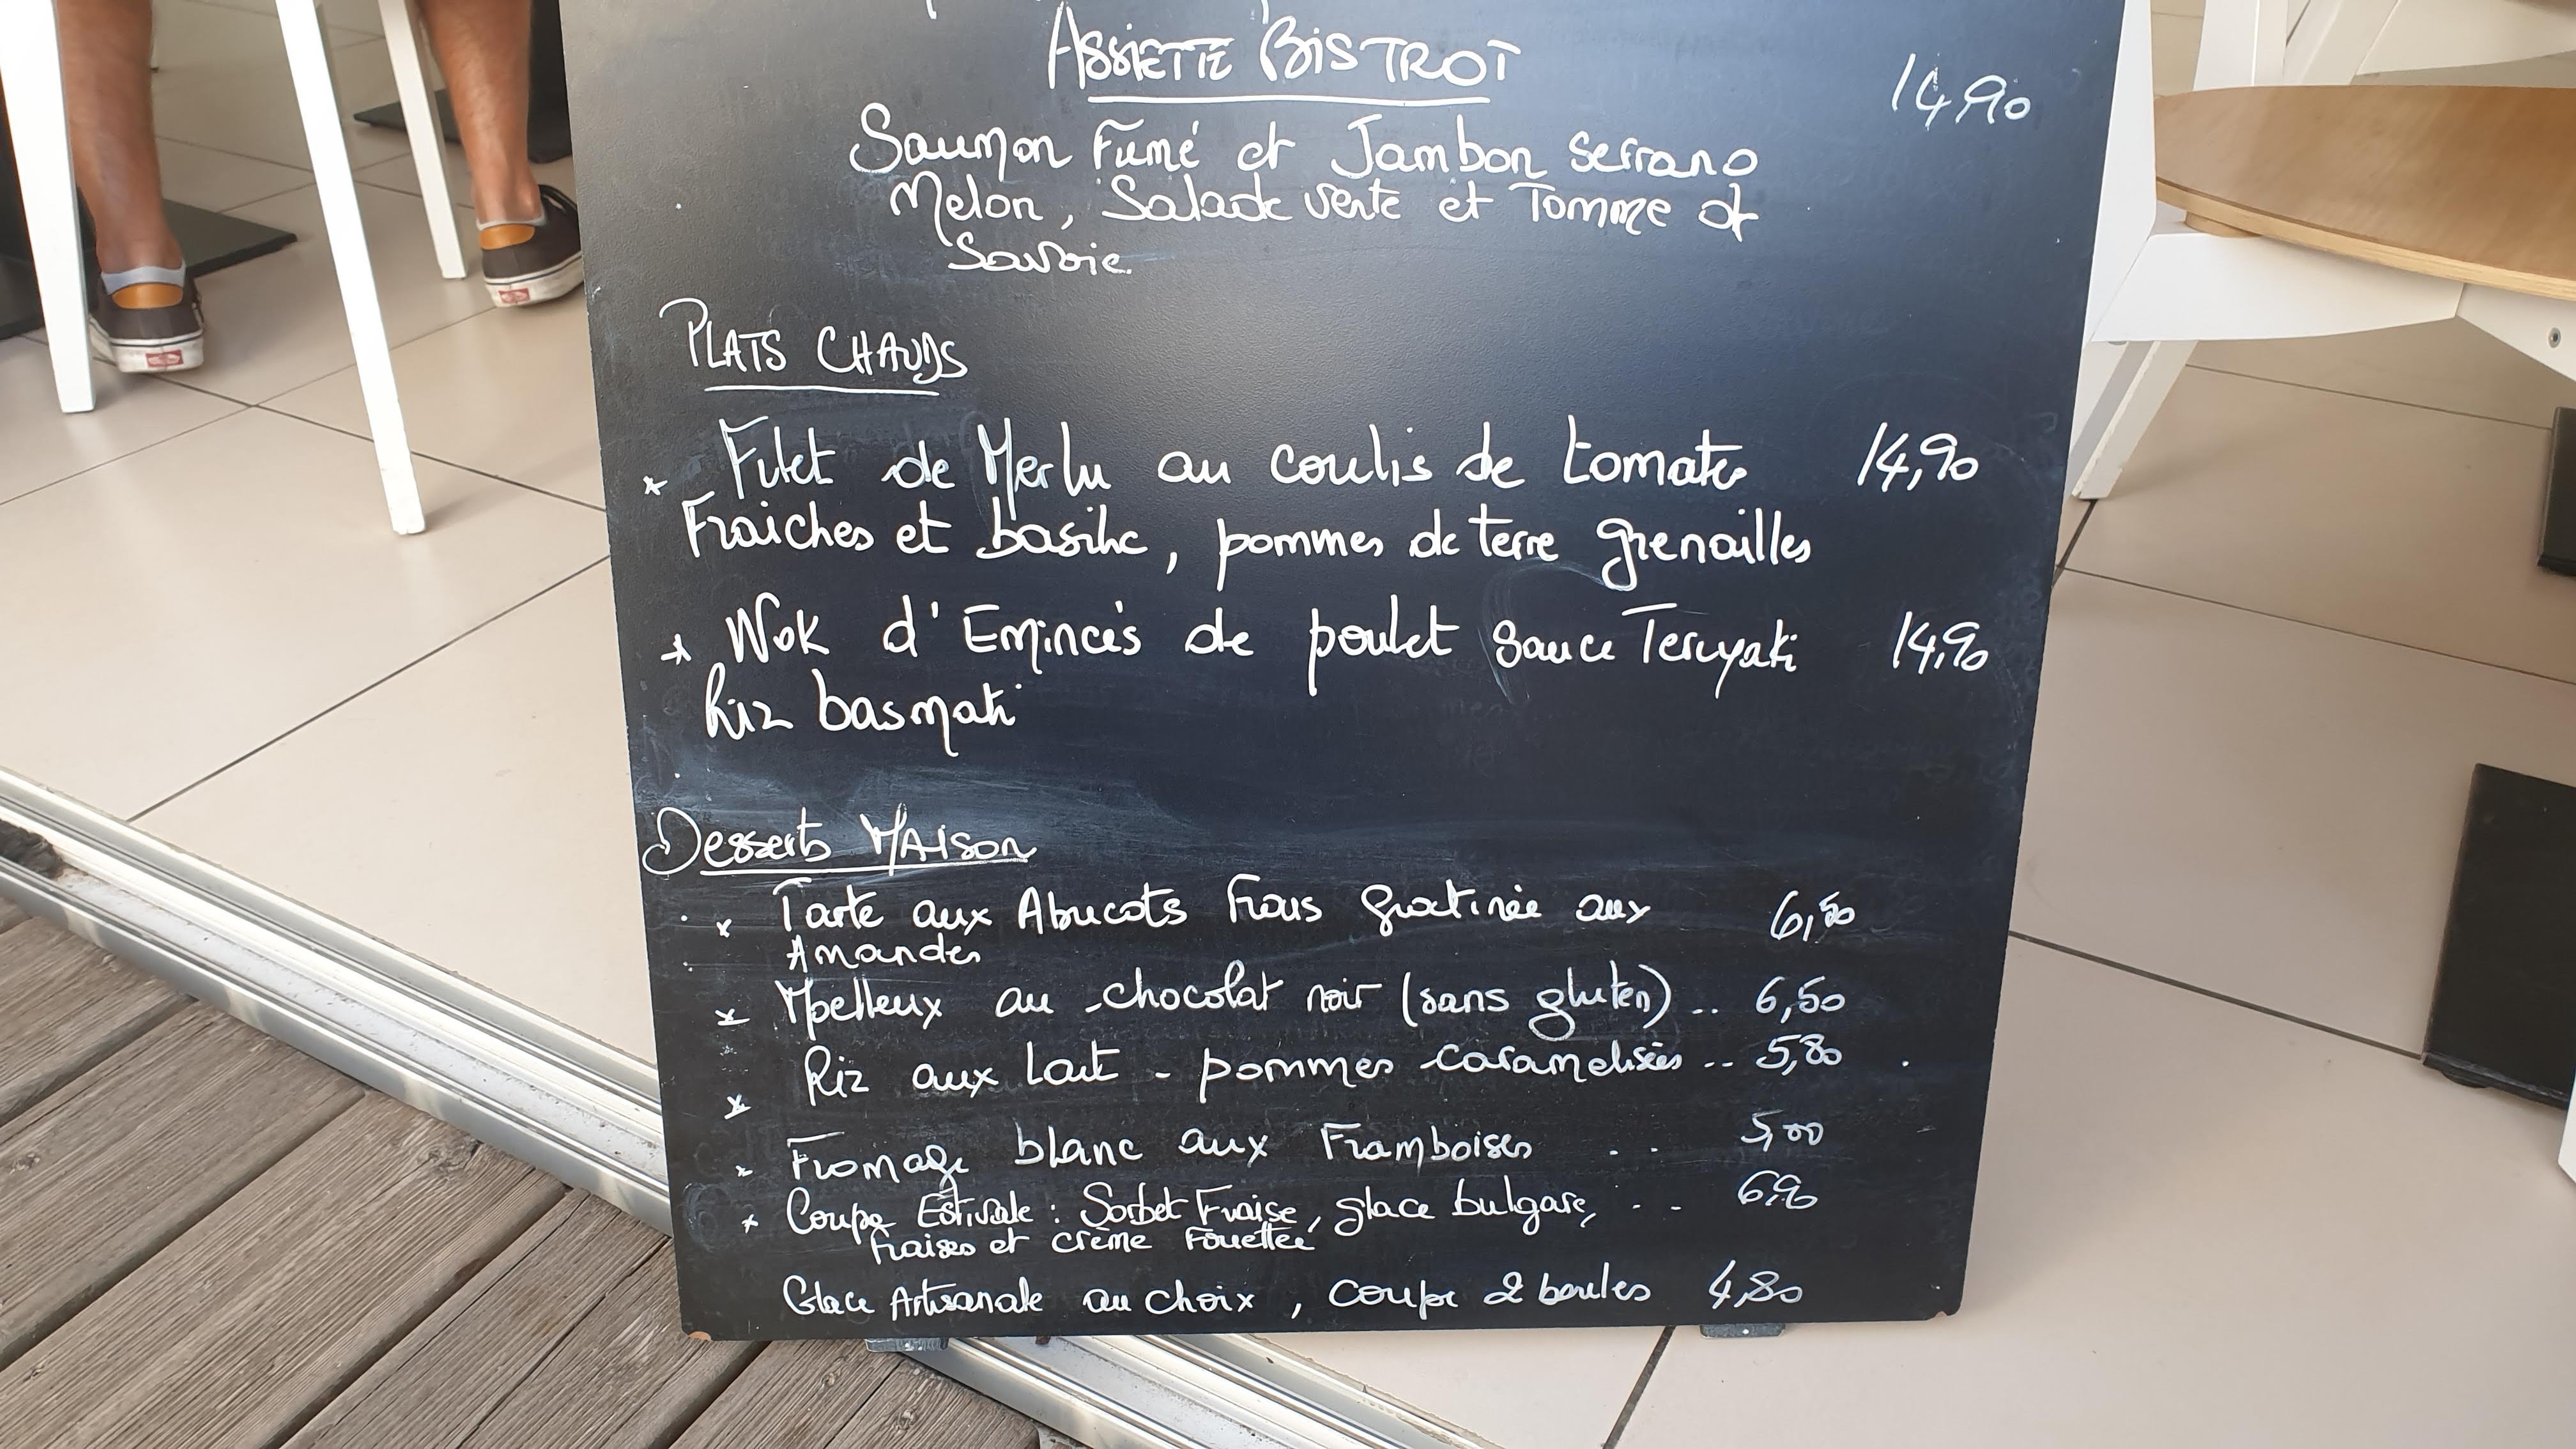 ASSIETTE BISTROT 14,90
Saumon Fumé et Jambon serrano
Melon, Salade verte et Tomme de
Savoie.
PLATS CHAUDS
* Filet de Merlu au coulis de tomates 14,90
Fraiches et basilic, pommes de terre grenailles
* Wok d'Emincés de poulet sauce Teriyaki 14,90
Riz basmati
Desserts MAISON
* Tarte aux Abricots Frais gratinée aux 6,50
Amandes
* Moelleux au chocolat noir (sans gluten) .. 6,50
* Riz aux Lait - pommes caramelisées .. 5,80
* Fromage blanc aux Framboises .. 5,00
* Coupe Estivale : Sorbet Fraise, glace bulgare, .. 6,90
fraises et crème Fouettée
Glace Artisanale au choix, coupe 2 boules 4,80